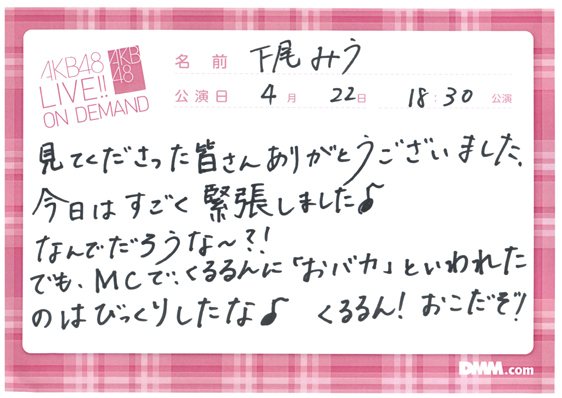 AKB48
LIVE!!
ON DEMAND
AKB
48
名前 下尾みう
公演日 4月 22日 18:30 公演
見てくださった皆さんありがとうございました。
今日はすごく緊張しました♪
なんでだろうな〜?!
でも、MCで、くるるんに「おバカ」といわれた
のはびっくりしたな♪ くるるん!おこだぞ!
DMM.com